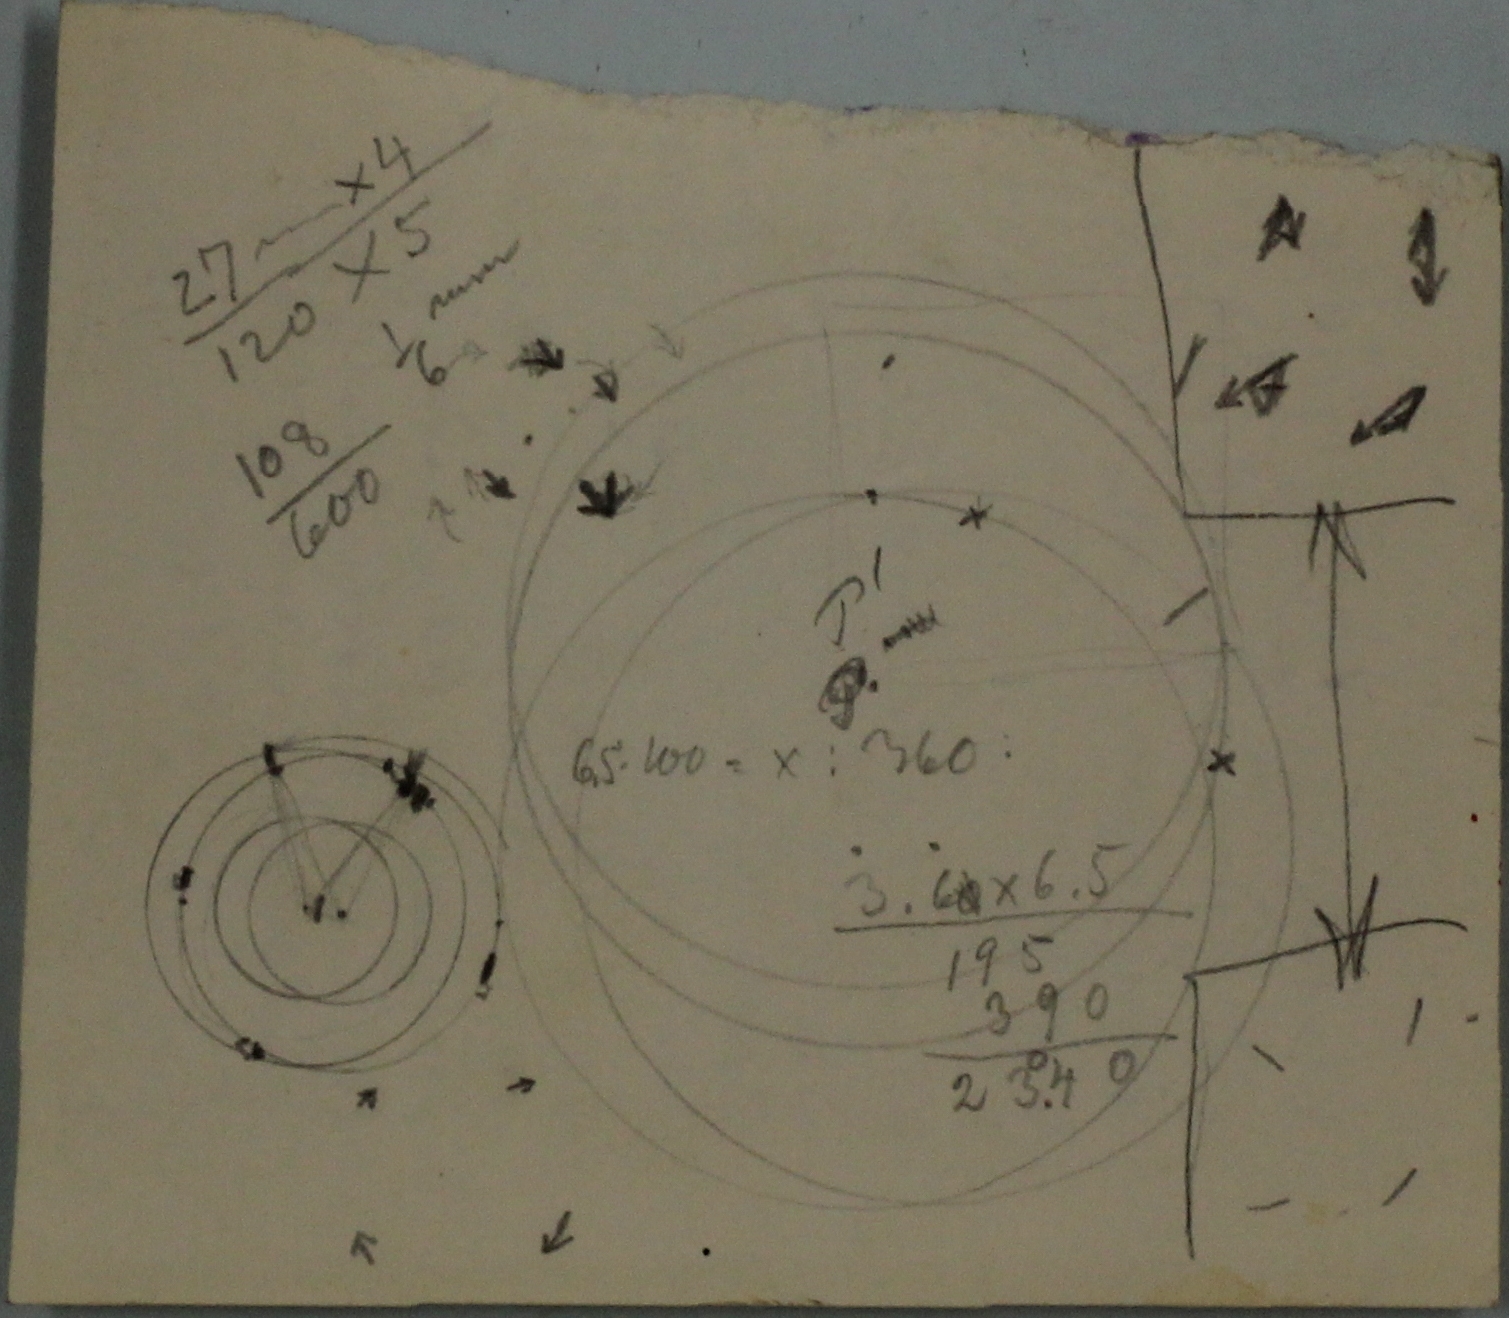 27 x4
120 x 5
1/6
108
600
P'
65·100 = x : 360 :
3.60 x 6.5
195
390
23.40